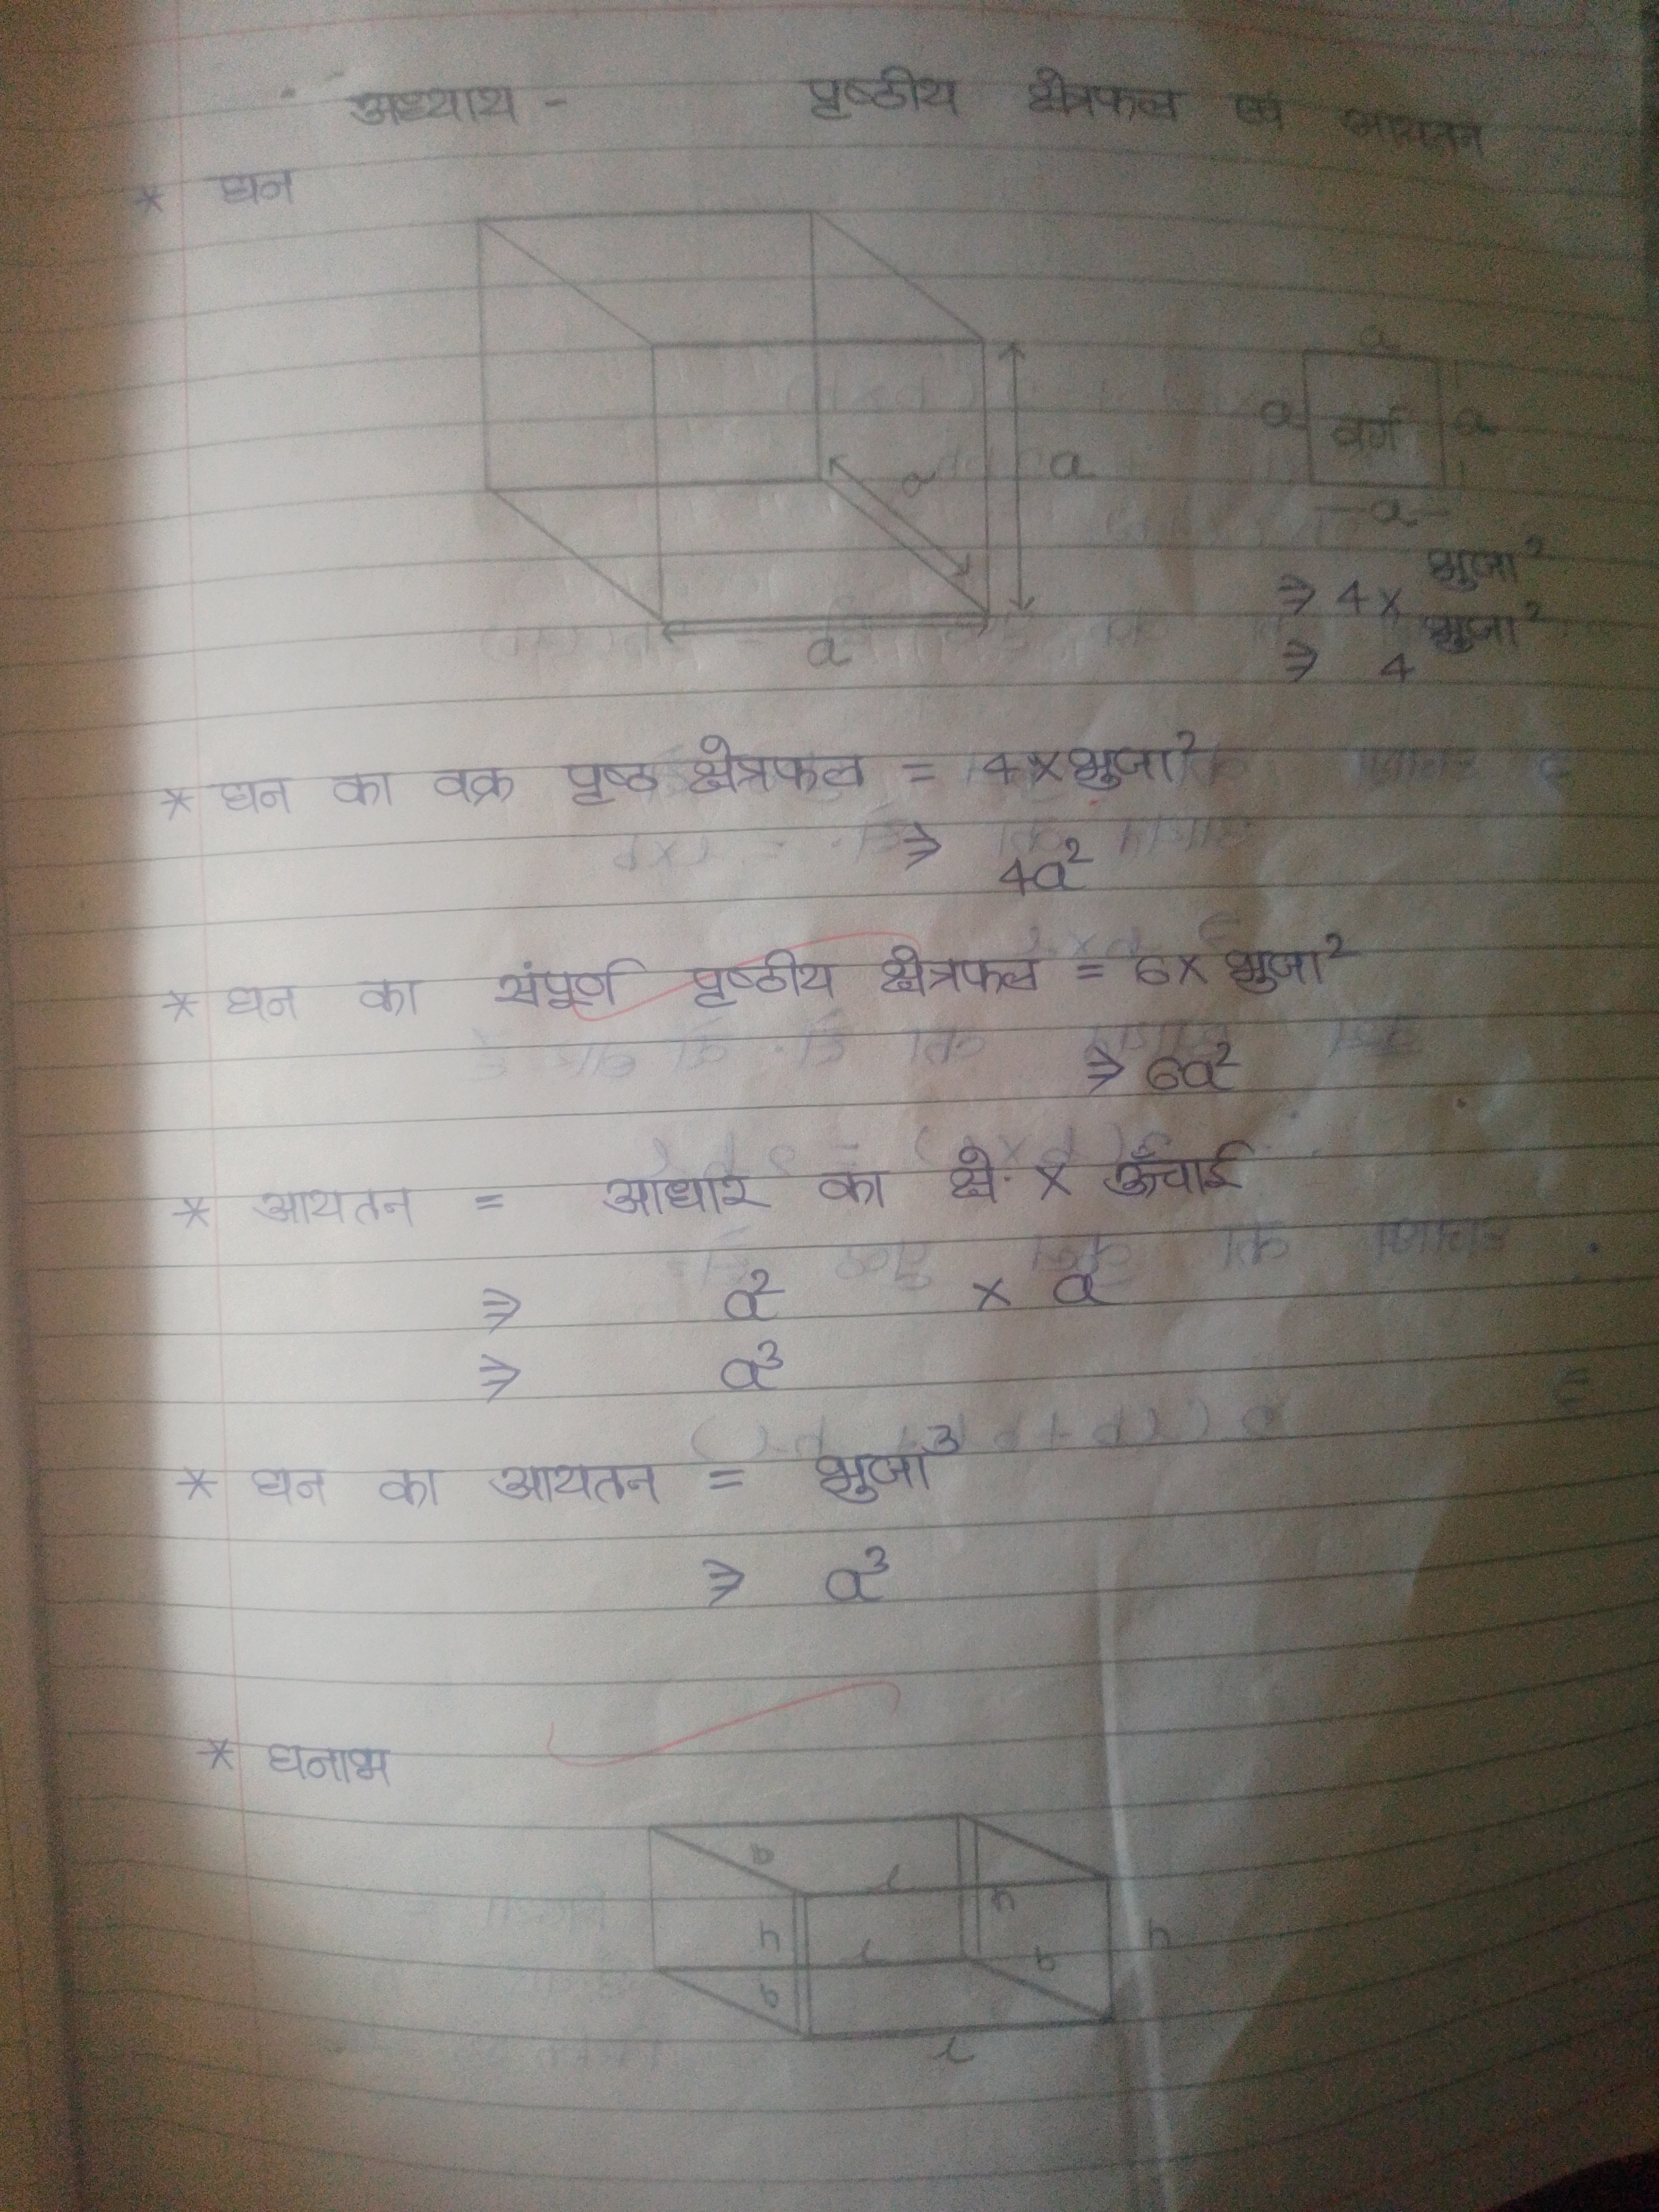 अध्याय - पृष्ठीय क्षेत्रफल एवं आयतन
* घन
a
a वर्ग a
a a
-a-
a
⇒ 4 x भुजा²
⇒ 4 भुजा²
* घन का वक्र पृष्ठ क्षेत्रफल = 4 x भुजा²
⇒ 4a²
* घन का संपूर्ण पृष्ठीय क्षेत्रफल = 6 x भुजा²
⇒ 6a²
* आयतन = आधार का क्षे. x ऊँचाई
⇒ a² x a
⇒ a³
* घन का आयतन = भुजा³
⇒ a³
* घनाभ
b l
h h
h l b
b
l